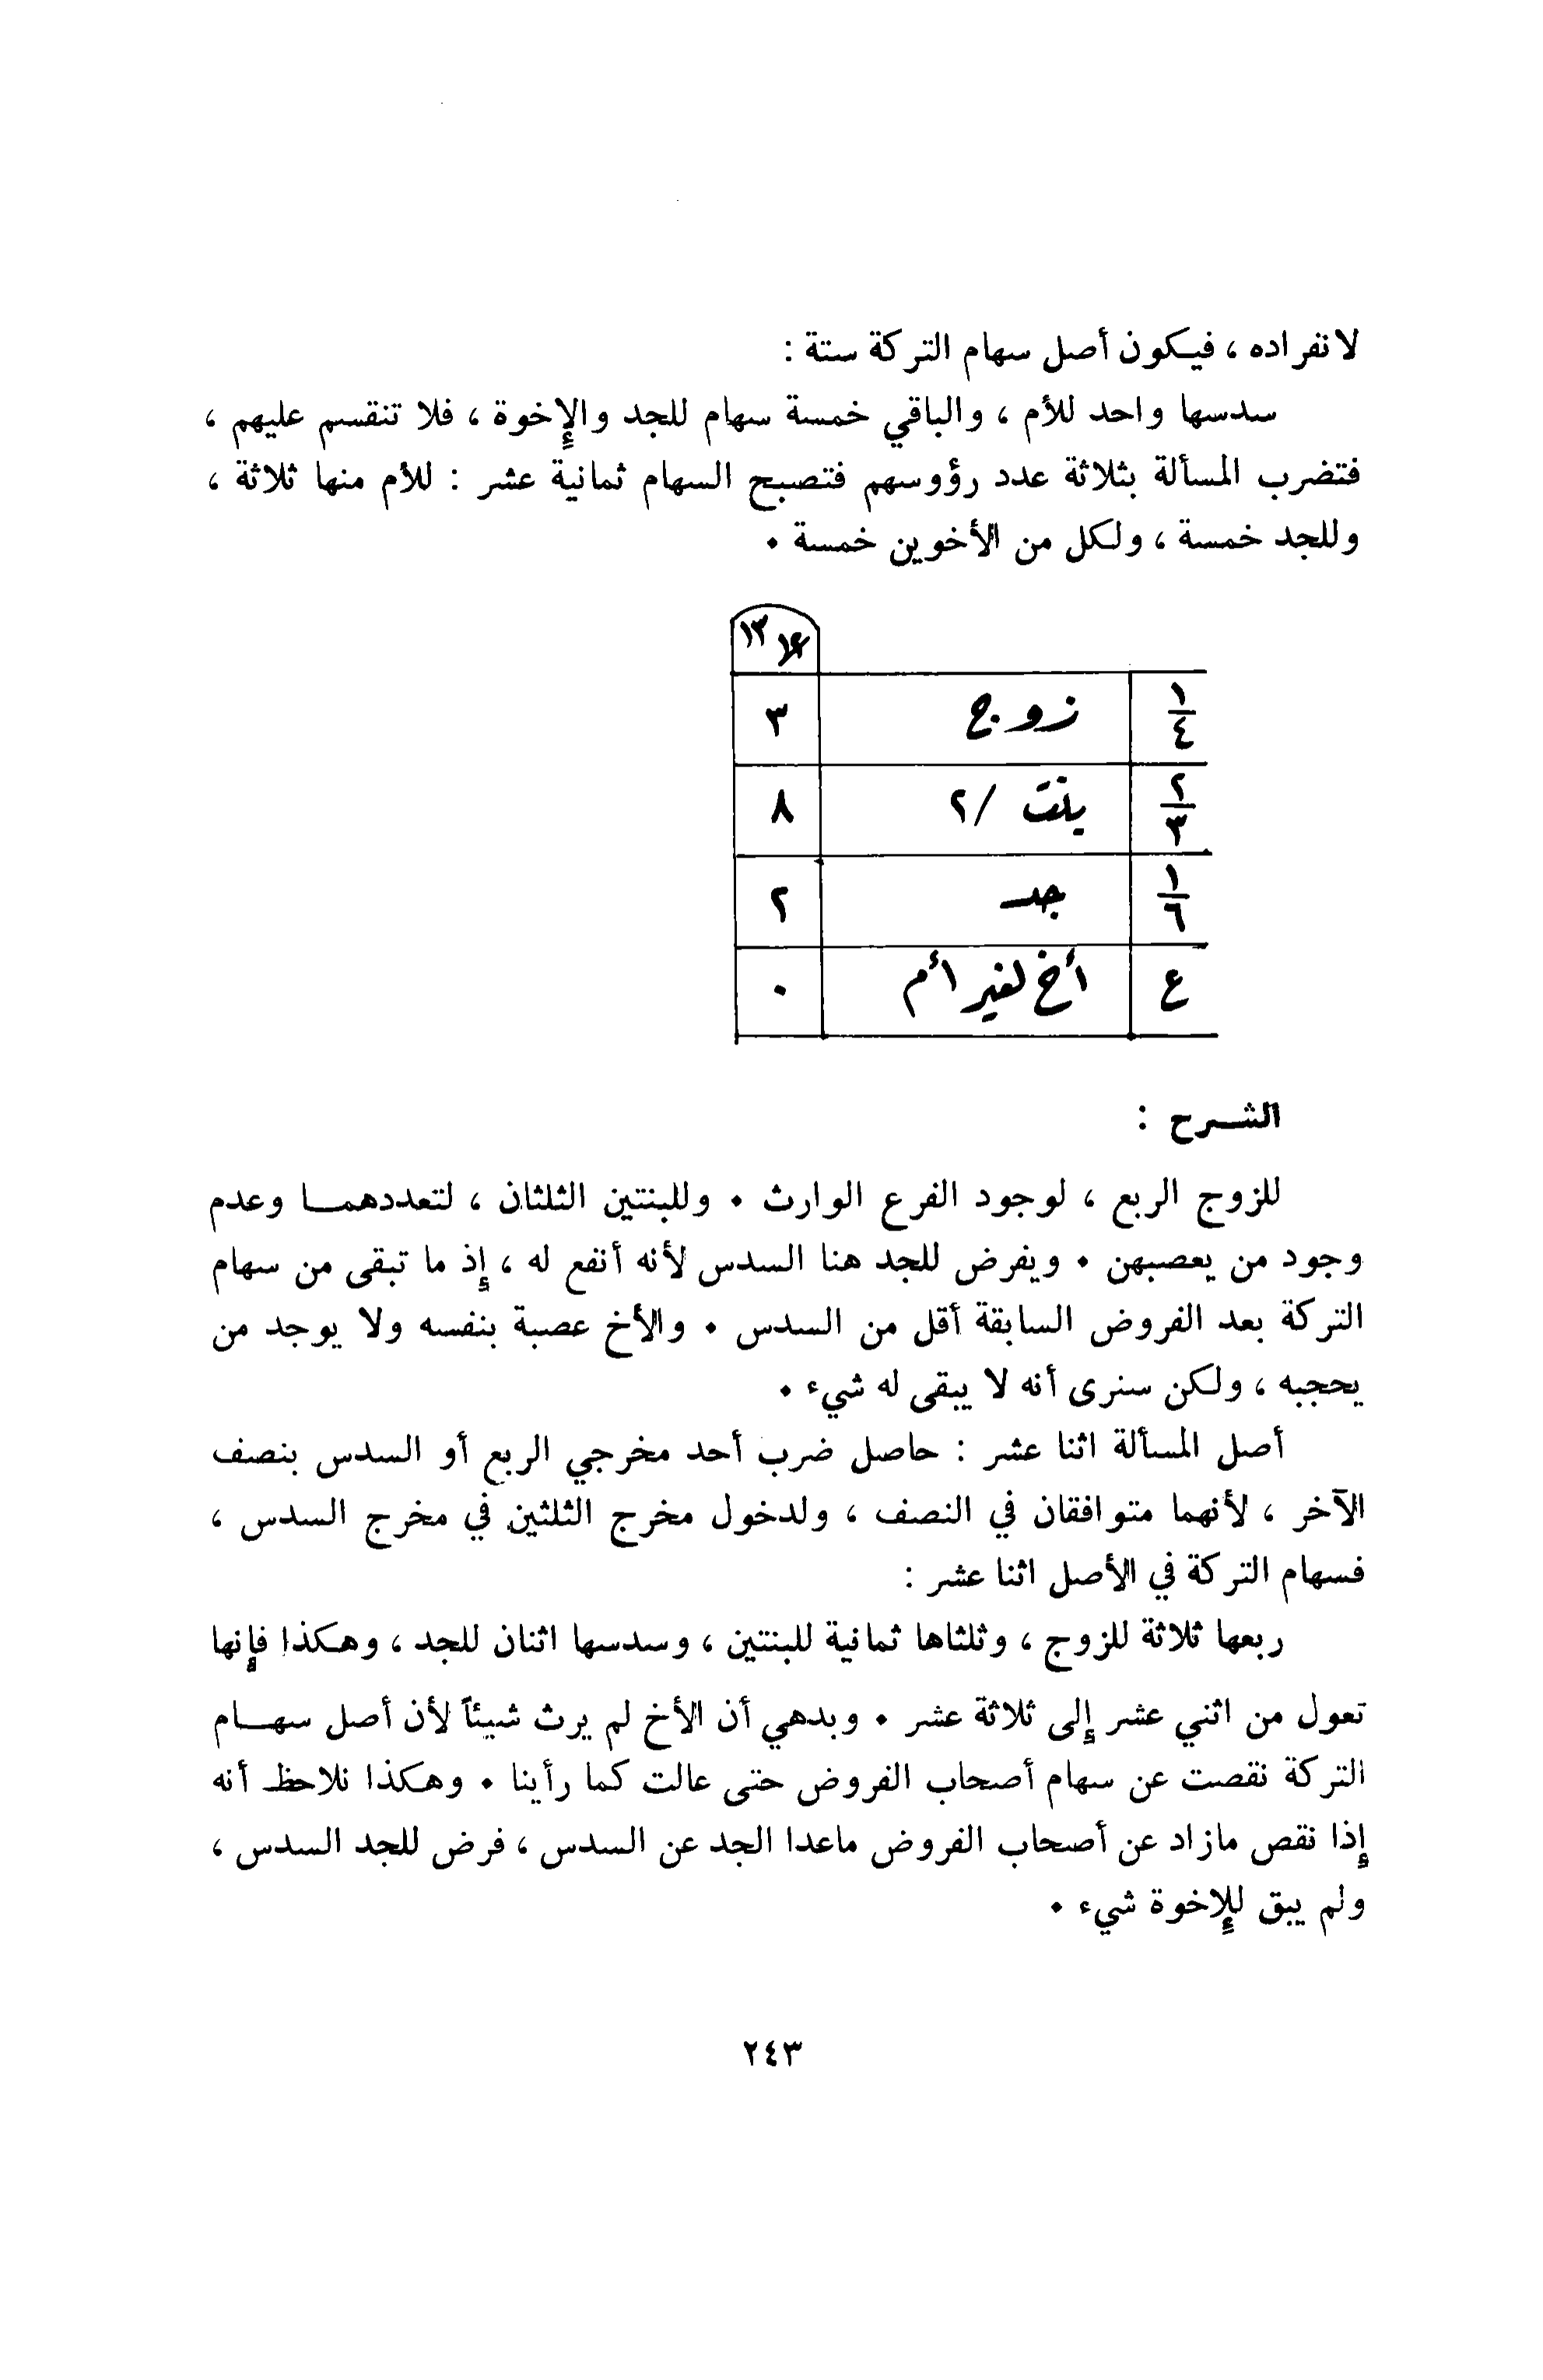 لانفراده ، فيكون أصل سهام التركة ستة :
سدسها واحد للأم ، والباقي خمسة سهام للجد والإخوة ، فلا تنقسم عليهم ،
فتضرب المسألة بثلاثة عدد رؤوسهم فتصبح السهام ثمانية عشر : للأم منها ثلاثة ،
وللجد خمسة ، ولكل من الأخوين خمسة .
١٢ ١٣
١/٤ زوج ٣
٢/٣ بنت /٢ ٨
١/٦ جد ٢
ع أخ لغير أم ٠
الشرح :
للزوج الربع ، لوجود الفرع الوارث . وللبنتين الثلثان ، لتعددهما وعدم
وجود من يعصبهن . ويفرض للجد هنا السدس لأنه أنفع له ، إذ ما تبقى من سهام
التركة بعد الفروض السابقة أقل من السدس . والأخ عصبة بنفسه ولا يوجد من
يحجبه ، ولكن سنرى أنه لا يبقى له شيء .
أصل المسألة اثنا عشر : حاصل ضرب أحد مخرجي الربع أو السدس بنصف
الآخر ، لأنهما متوافقان في النصف ، ولدخول مخرج الثلثين في مخرج السدس ،
فسهام التركة في الأصل اثنا عشر :
ربعها ثلاثة للزوج ، وثلثاها ثمانية للبنتين ، وسدسها اثنان للجد ، وهكذا فإنها
تعول من اثني عشر إلى ثلاثة عشر . وبدهي أن الأخ لم يرث شيئاً لأن أصل سهام
التركة نقصت عن سهام أصحاب الفروض حتى عالت كما رأينا . وهكذا نلاحظ أنه
إذا نقص مازاد عن أصحاب الفروض ماعدا الجد عن السدس ، فرض للجد السدس ،
ولم يبق للإخوة شيء .
٢٤٣